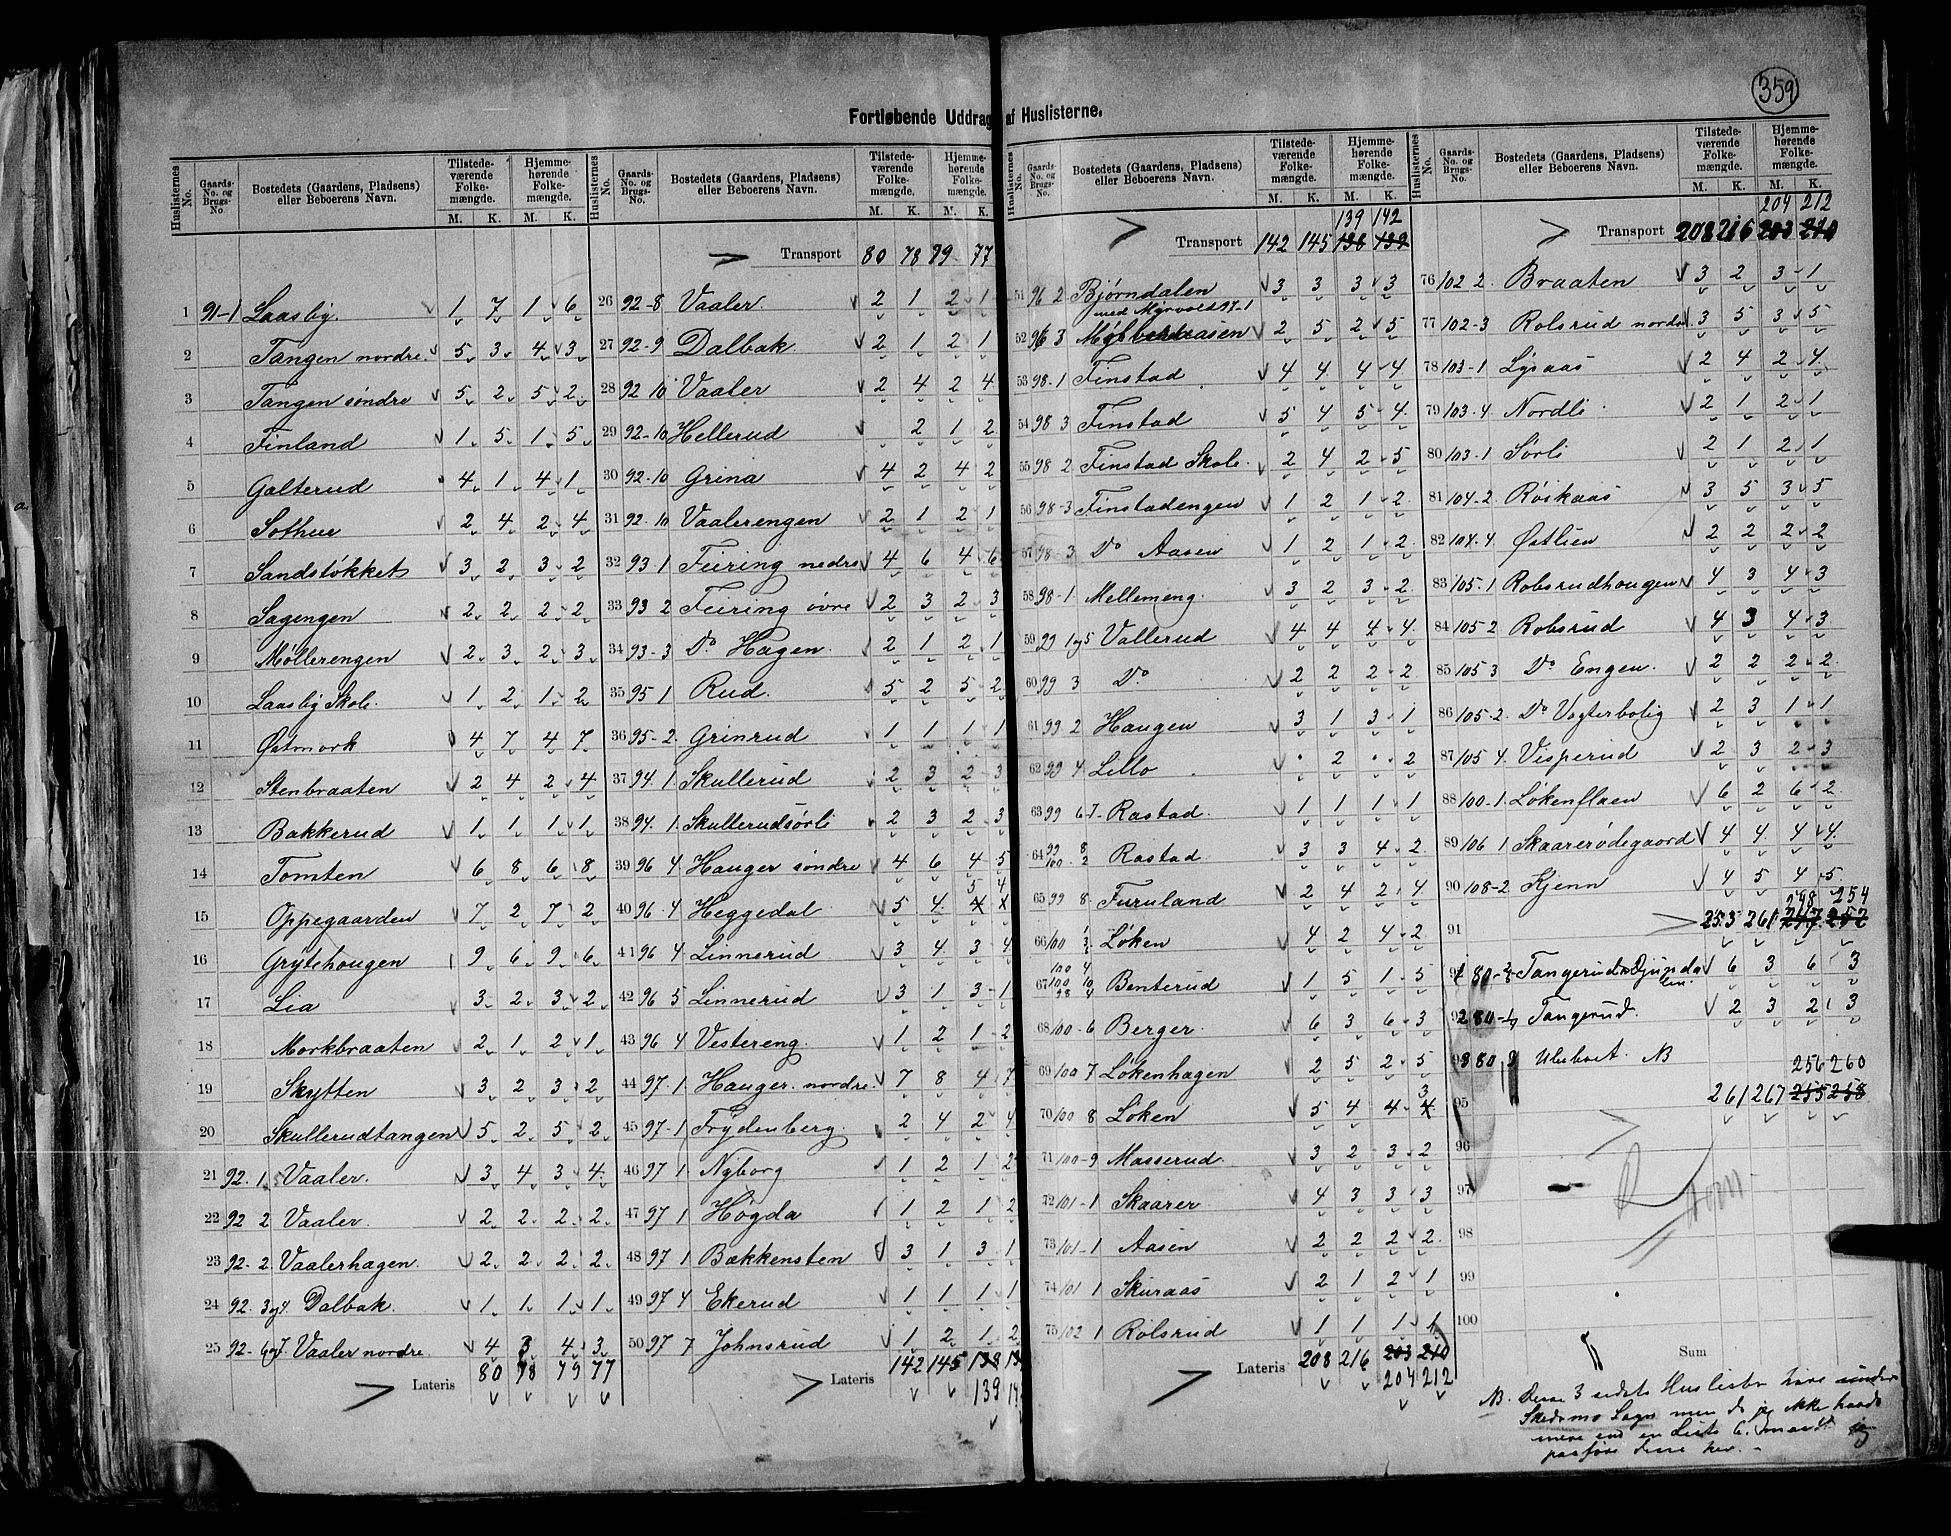 359
Fortløbende Uddrag af Huslisterne.
Huslisternes No. Gaards-No. og Brugs-No. Bostedets (Gaardens, Pladsens) eller Beboerens Navn. Tilstedeværende Folkemængde. M. K. Hjemmehørende Folkemængde. M. K.
1 91-1 Laasby 1 7 1 6
2 Tangen nordre 5 3 4 3
3 Tangen søndre 5 2 5 2
4 Finland 1 5 1 5
5 Galterud 4 1 4 1
6 Sothuu 2 4 2 4
7 Sandstøkket 3 2 3 2
8 Sagengen 2 2 2 2
9 Møllerengen 2 3 2 3
10 Laasby Skole 1 2 1 2
11 Østmork 4 7 4 7
12 Stenbraaten 2 4 2 4
13 Bakkerud 1 1 1 1
14 Tomten 6 8 6 8
15 Oppegaarden 7 2 7 2
16 Grytehougen 9 6 9 6
17 Lia 3 2 3 2
18 Morkbraaten 2 1 2 1
19 Skytten 3 2 3 2
20 Skullerudtangen 5 2 5 2
21 92. 1 Vaaler. 3 4 3 4
22 92 2 Vaaler. 2 2 2 2
23 92- 2 Vaalerhagen. 2 2 2 2
24 92. 3 og 4. Dalbak. 1 1 1 1
25 92-6 og 7 Vaaler nordre 4 3 4 3
Lateris 80 78 79 77
Huslisternes No. Gaards-No. og Brugs-No. Bostedets (Gaardens, Pladsens) eller Beboerens Navn. Tilstedeværende Folkemængde. M. K. Hjemmehørende Folkemængde. M. K.
Transport 80 78 79 77
26 92-8 Vaaler. 2 1 2 1
27 92-9 Dalbak. 2 1 2 1
28 92 10 Vaaler 2 4 2 4
29 92-10 Hellerud 2 1 2
30 92-10 Grina 4 2 4 2
31 92. 10 Vaalerengen 2 1 2 1
32 93 1 Feiring nedre 4 6 4 6
33 93 2 Feiring övre 2 3 2 3
34 93-3 Do Hagen. 2 1 2 1
35 95 1 Rud. 5 2 5 2
36 95-2. Grinrud 1 1 1 1
37 94. 1. Skullerud 2 3 2 3
38 94. 1. Skullerudsörli 2 3 2 3
39 96 4 Hauger söndre 4 6 4 5
40 96. 4 Heggedal 5 4 5 4
41 96 4 Linnerud 3 4 3 4
42 96 5 Linnerud 3 1 3 1
43 96 4 Vestereng. 1 2 1 2
44 97. 1 Hauger nordre. 7 8 4 7
45 97-1 Frydenberg. 2 4 2 4
46 97 1 Nyborg 1 2 1 2
47 97 1 Høgda 1 2 1 2
48 97 1 Bakkensten 3 1 3 1
49 97 4 Ekerud 1 1 1 1
50 97 7 Johnsrud 1 2 1 2
Lateris 142 145 138
139
Huslisternes No. Gaards-No. og Brugs-No. Bostedets (Gaardens, Pladsens) eller Beboerens Navn. Tilstedeværende Folkemængde. M. K. Hjemmehørende Folkemængde. M. K.
139 142
Transport 142 145 138 139
51 96 2 Bjørndalen 3 3 3 3
med Myrvold 97-1
52 96 3 aasen 2 5 2 5
53 98-1 Finstad 4 4 4 4
54 98 3 Finstad 5 4 5 4
55 98 2 Finstad Skole. 2 4 2 5
56 98-3 Finstadengen 1 2 1 2
57 98 3 Do Aasen 1 2 1 2
58 98-1 Mellemeng. 3 2 3 2
59 99 1 og 5 Vallerud 4 4 4 4
60 99 3 Do 2 2 2 2
61 99 2 Haugen 3 1 3 1
62 99 4 Lillo . 2 . 2
63 99 6-7- Rastad. 1 1 1 1
64 99 8 100 2 Rastad. 3 3 4 2
65 99 8 Furuland 2 4 2 4
66 100 Løken 4 2 4 2
67 100 4 100 10 98 4 Benterud 1 5 1 5
68 100-6 Berger. 6 3 6 3
69 100 7 Løkenhagen 2 5 2 5
70 100 8 Løken 5 4 4 3
71 100-9 Masserud. 3 2 3 2
72 101-1 Skaarer 4 3 3 3
73 101-1 Aasen 2 2 2 2
74 101 1 Skuraas 2 1 2 1
75 102 1 Rolsrud 1 1 1 1
Lateris 208 216 203 210
204 212
Huslisternes No. Gaards-No. og Brugs-No. Bostedets (Gaardens, Pladsens) eller Beboerens Navn. Tilstedeværende Folkemængde. M. K. Hjemmehørende Folkemængde. M. K.
204 212
Transport 208 216 203 210
76 102 2. Braaten 3 2 3 1
77 102-3 Rolsrud nordre 3 5 3 5
78 103-1 Lysaas 2 4 2 4
79 103-4 Nordli 2 1 2 1
80 103-1 Sörli 2 1 2 1
81 104-2 Röikaas 3 5 3 5
82 104. 4 Østlien 2 2 2 2
83 105-1 Robsrudhougen 4 3 4 3
84 105-2 Robsrud 4 3 4 3
85 105 3 Do Engen. 2 2 2 2
86 105-2. Do Vogterbolig 2 3 1 1
87 105 4 Visperud 2 3 2 3
88 100-1 Løkenflaen 6 2 6 2
89 106 1 Skaarerødegaard 4 4 4 4
90 108-2 Kjenn 4 5 4 5
248 254
91 253 261 247 252
80-3 Tangerud 6 3 6 3
80-4 Tangerud. 2 3 2 3
80 NB
256 260
261 267 255 258
95
96
97
98
99
100
Sum
NB. Disse 3 sidste Huslister höre under
Skedsmo Sogn men da jeg ikke havde
mere end en Liste C. maatte jeg
paaføre disse her. -